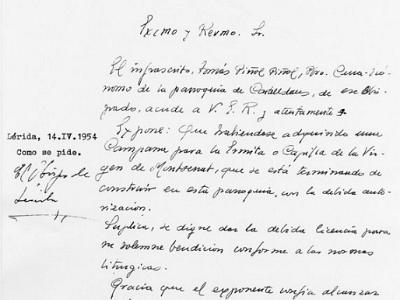 Excmo y Revmo. Sr.
El infrascrito, Tomás Piñol Piñol, Pbro. Cura-Ecó
nomo de la parroquia de de ese Obis
prado, acude a V. E. R. y atentamente
Expone: Que habiendose adquirido una
Campana para la Ermita o Capilla de la Vir-
gen de Montserrat, que se está terminando de
construir en esta parroquia, con la debida auto-
rización.
Suplica, se digne dar la debida licencia para
su solemne bendición conforme a las normas
liturgicas.
Gracia que el exponente confia alcanzar
Lérida, 14.IV.1954
Como se pide.
El Obispo de
Lérida